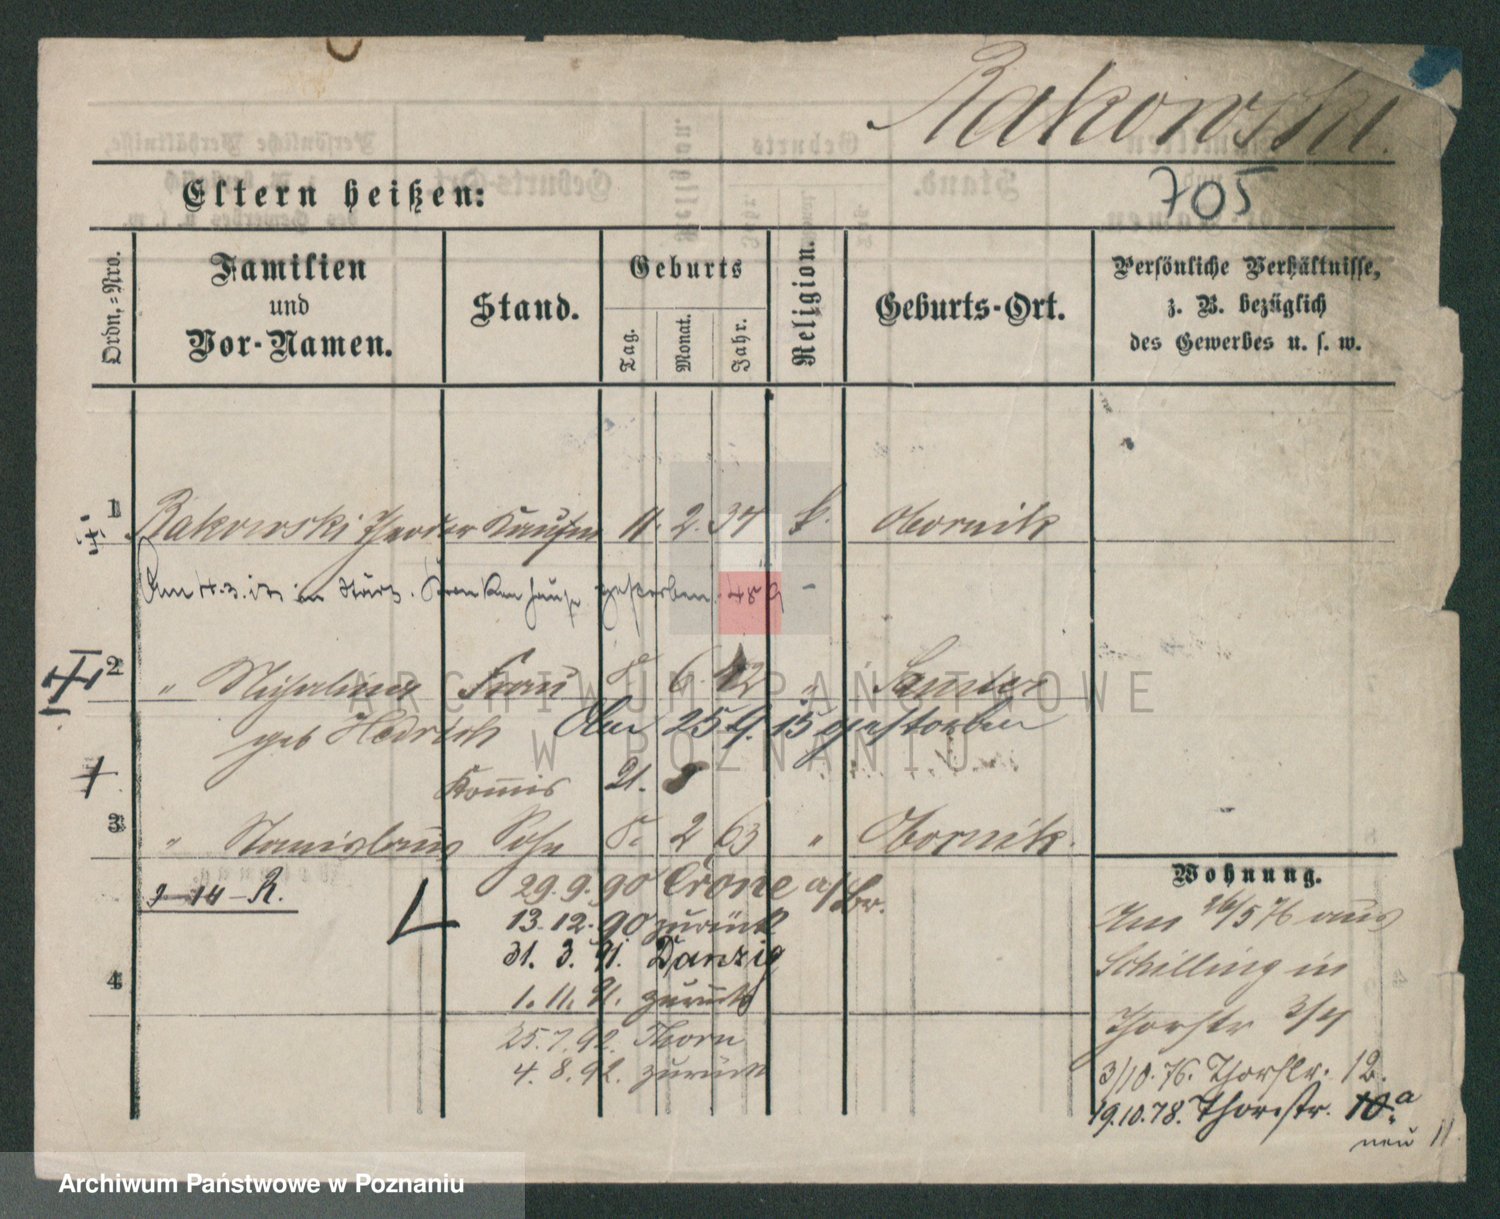 Rakowski.
705
Eltern heißen:
Ordn.-Nro.
Familien
und
Vor-Namen.
Stand.
Geburts
Tag.
Monat.
Jahr.
Religion.
Geburts-Ort.
Persönliche Verhältnisse,
z. B. bezüglich
des Gewerbes u. s. w.
1 Rakowski Theodor Kaufm 11. 2. 37 k. Obornik
Am in Krankenhause gestorben
2 " Frau 8 6. 42 " Samter
geb
Am 25 9. 15 gestorben
Kommis 21. 8
3 " Stanislaus Sohn 8. 2 63 " Obornik.
29.9.90 Crone a/Br.
R.
13.12.90 zurück
31. 3. 91. Danzig
4
1. 11. 91. zurück
25.7.92. Thorn
4. 8. 92. zurück
Wohnung.
Am 26/5 76 aus
Schilling in
Thorstr 3/4
3/10.76. Thorstr. 12.
19.10.78. Thorstr. 10.a
neu 11.
ARCHIWUM PAŃSTWOWE
W POZNANIU
Archiwum Państwowe w Poznaniu